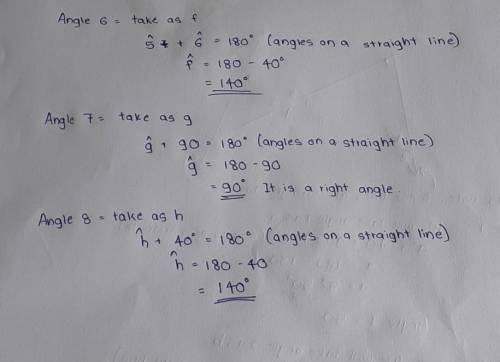 Angle 6 = take as f
5̂ + 6̂ = 180° (angles on a straight line)
f̂ = 180 - 40°
= 140°
Angle 7 = take as g
ĝ + 90 = 180° (angles on a straight line)
ĝ = 180 - 90
= 90° It is a right angle.
Angle 8 = take as h
ĥ + 40° = 180° (angles on a straight line)
ĥ = 180 - 40
= 140°